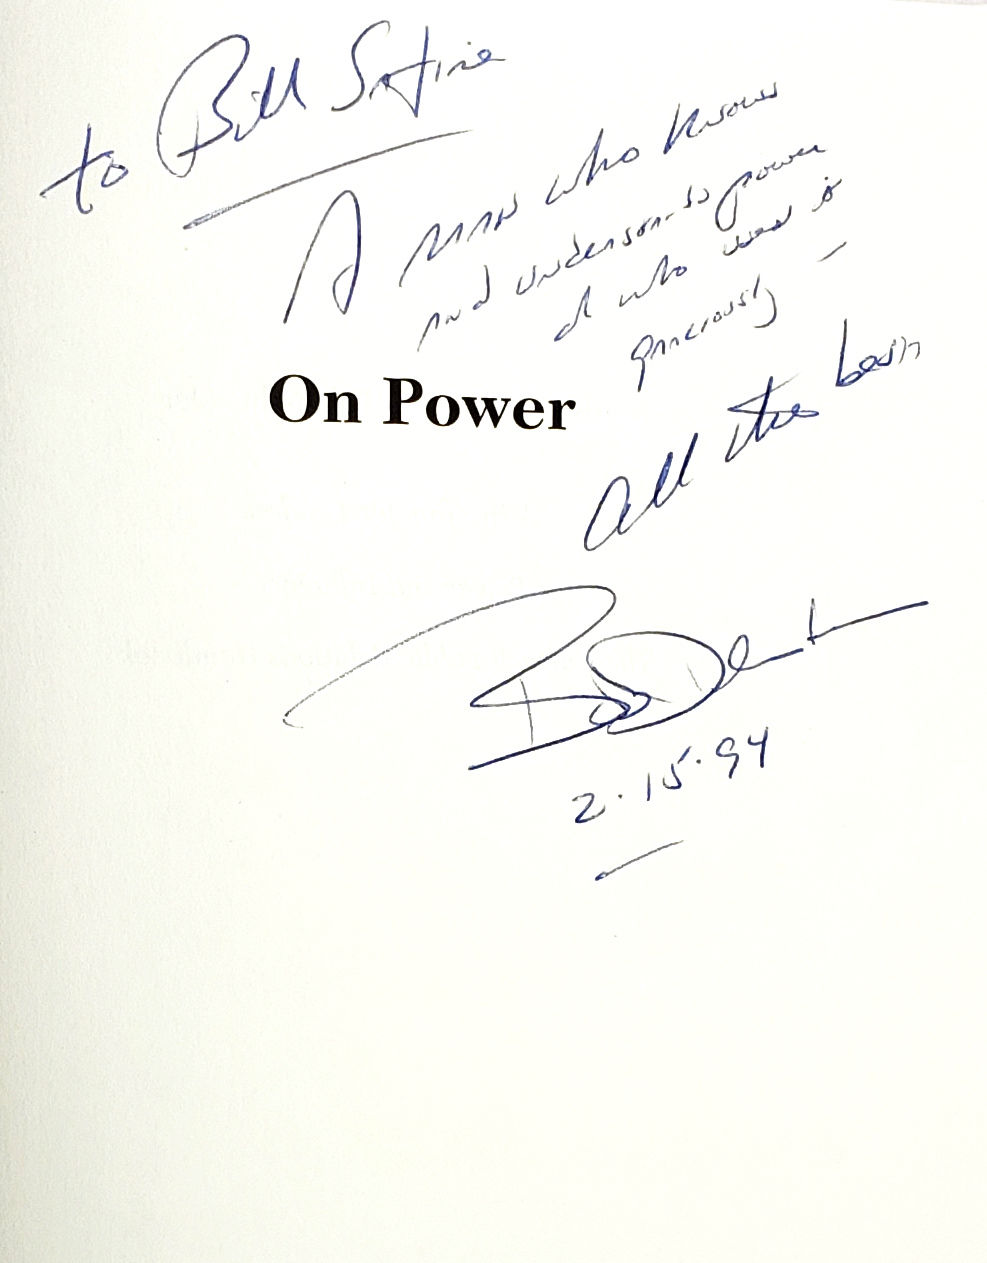 to Bill Safire
A man who knows
and understands power
& who uses it
generously —
On Power
all the best
2.15.94